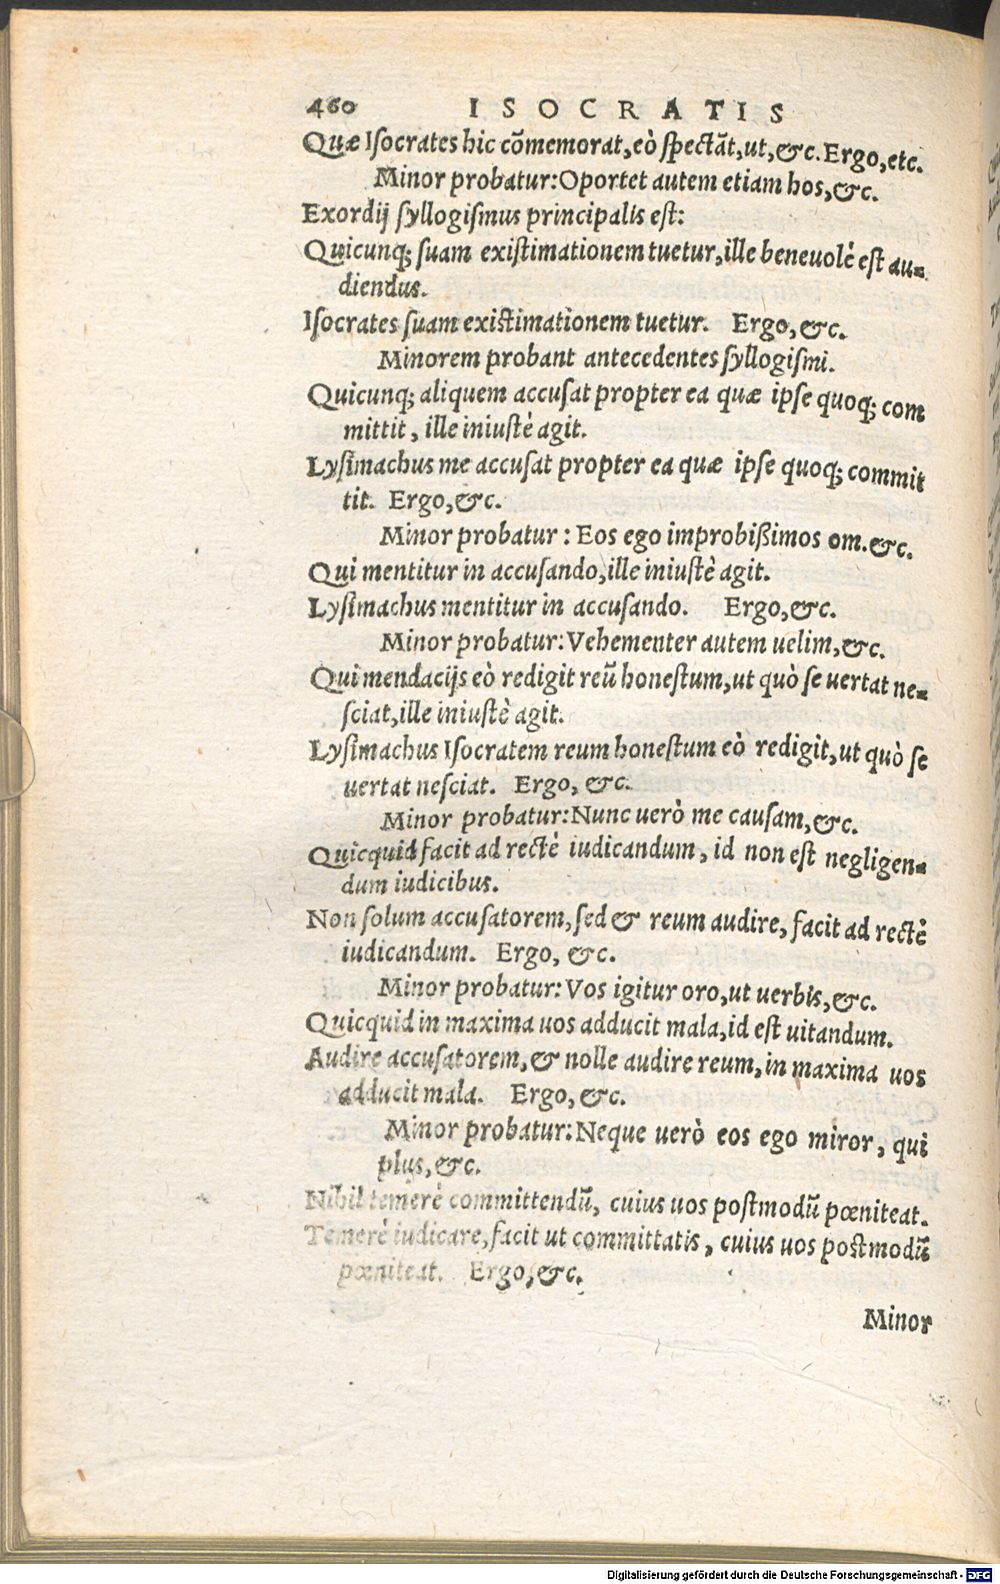 460 ISOCRATIS
Quæ Iſocrates hic cōmemorat, eò ſpectāt, ut, &c. Ergo, etc.
Minor probatur: Oportet autem etiam hos, &c.
Exordij ſyllogiſmus principalis est:
Quicunq; ſuam existimationem tuetur, ille beneuolè est au-
diendus.
Iſocrates ſuam existimationem tuetur. Ergo, &c.
Minorem probant antecedentes ſyllogiſmi.
Quicunq; aliquem accuſat propter ea quæ ipſe quoq; com
mittit, ille iniustè agit.
Lyſimachus me accuſat propter ea quæ ipſe quoq; commit
tit. Ergo, &c.
Minor probatur: Eos ego improbißimos om. &c.
Qui mentitur in accuſando, ille iniustè agit.
Lyſimachus mentitur in accuſando. Ergo, &c.
Minor probatur: Vehementer autem uelim, &c.
Qui mendacijs eò redigit reū honestum, ut quò ſe vertat ne-
ſciat, ille iniustè agit.
Lyſimachus Iſocratem reum honestum eò redigit, ut quò ſe
uertat neſciat. Ergo, &c.
Minor probatur: Nunc uerò me cauſam, &c.
Quicquid facit ad rectè iudicandum, id non est negligen-
dum iudicibus.
Non ſolum accuſatorem, ſed & reum audire, facit ad rectè
iudicandum. Ergo, &c.
Minor probatur: Vos igitur oro, ut uerbis, &c.
Quicquid in maxima uos adducit mala, id est uitandum.
Audire accuſatorem, & nolle audire reum, in maxima uos
adducit mala. Ergo, &c.
Minor probatur: Neque uerò eos ego miror, qui
plus, &c.
Nihil temerè committendū, cuius uos postmodū pœniteat.
Temerè iudicare, facit ut committatis, cuius uos postmodū
pœniteat. Ergo, &c.
Minor
Digitalisierung gefördert durch die Deutsche Forschungsgemeinschaft - DFG